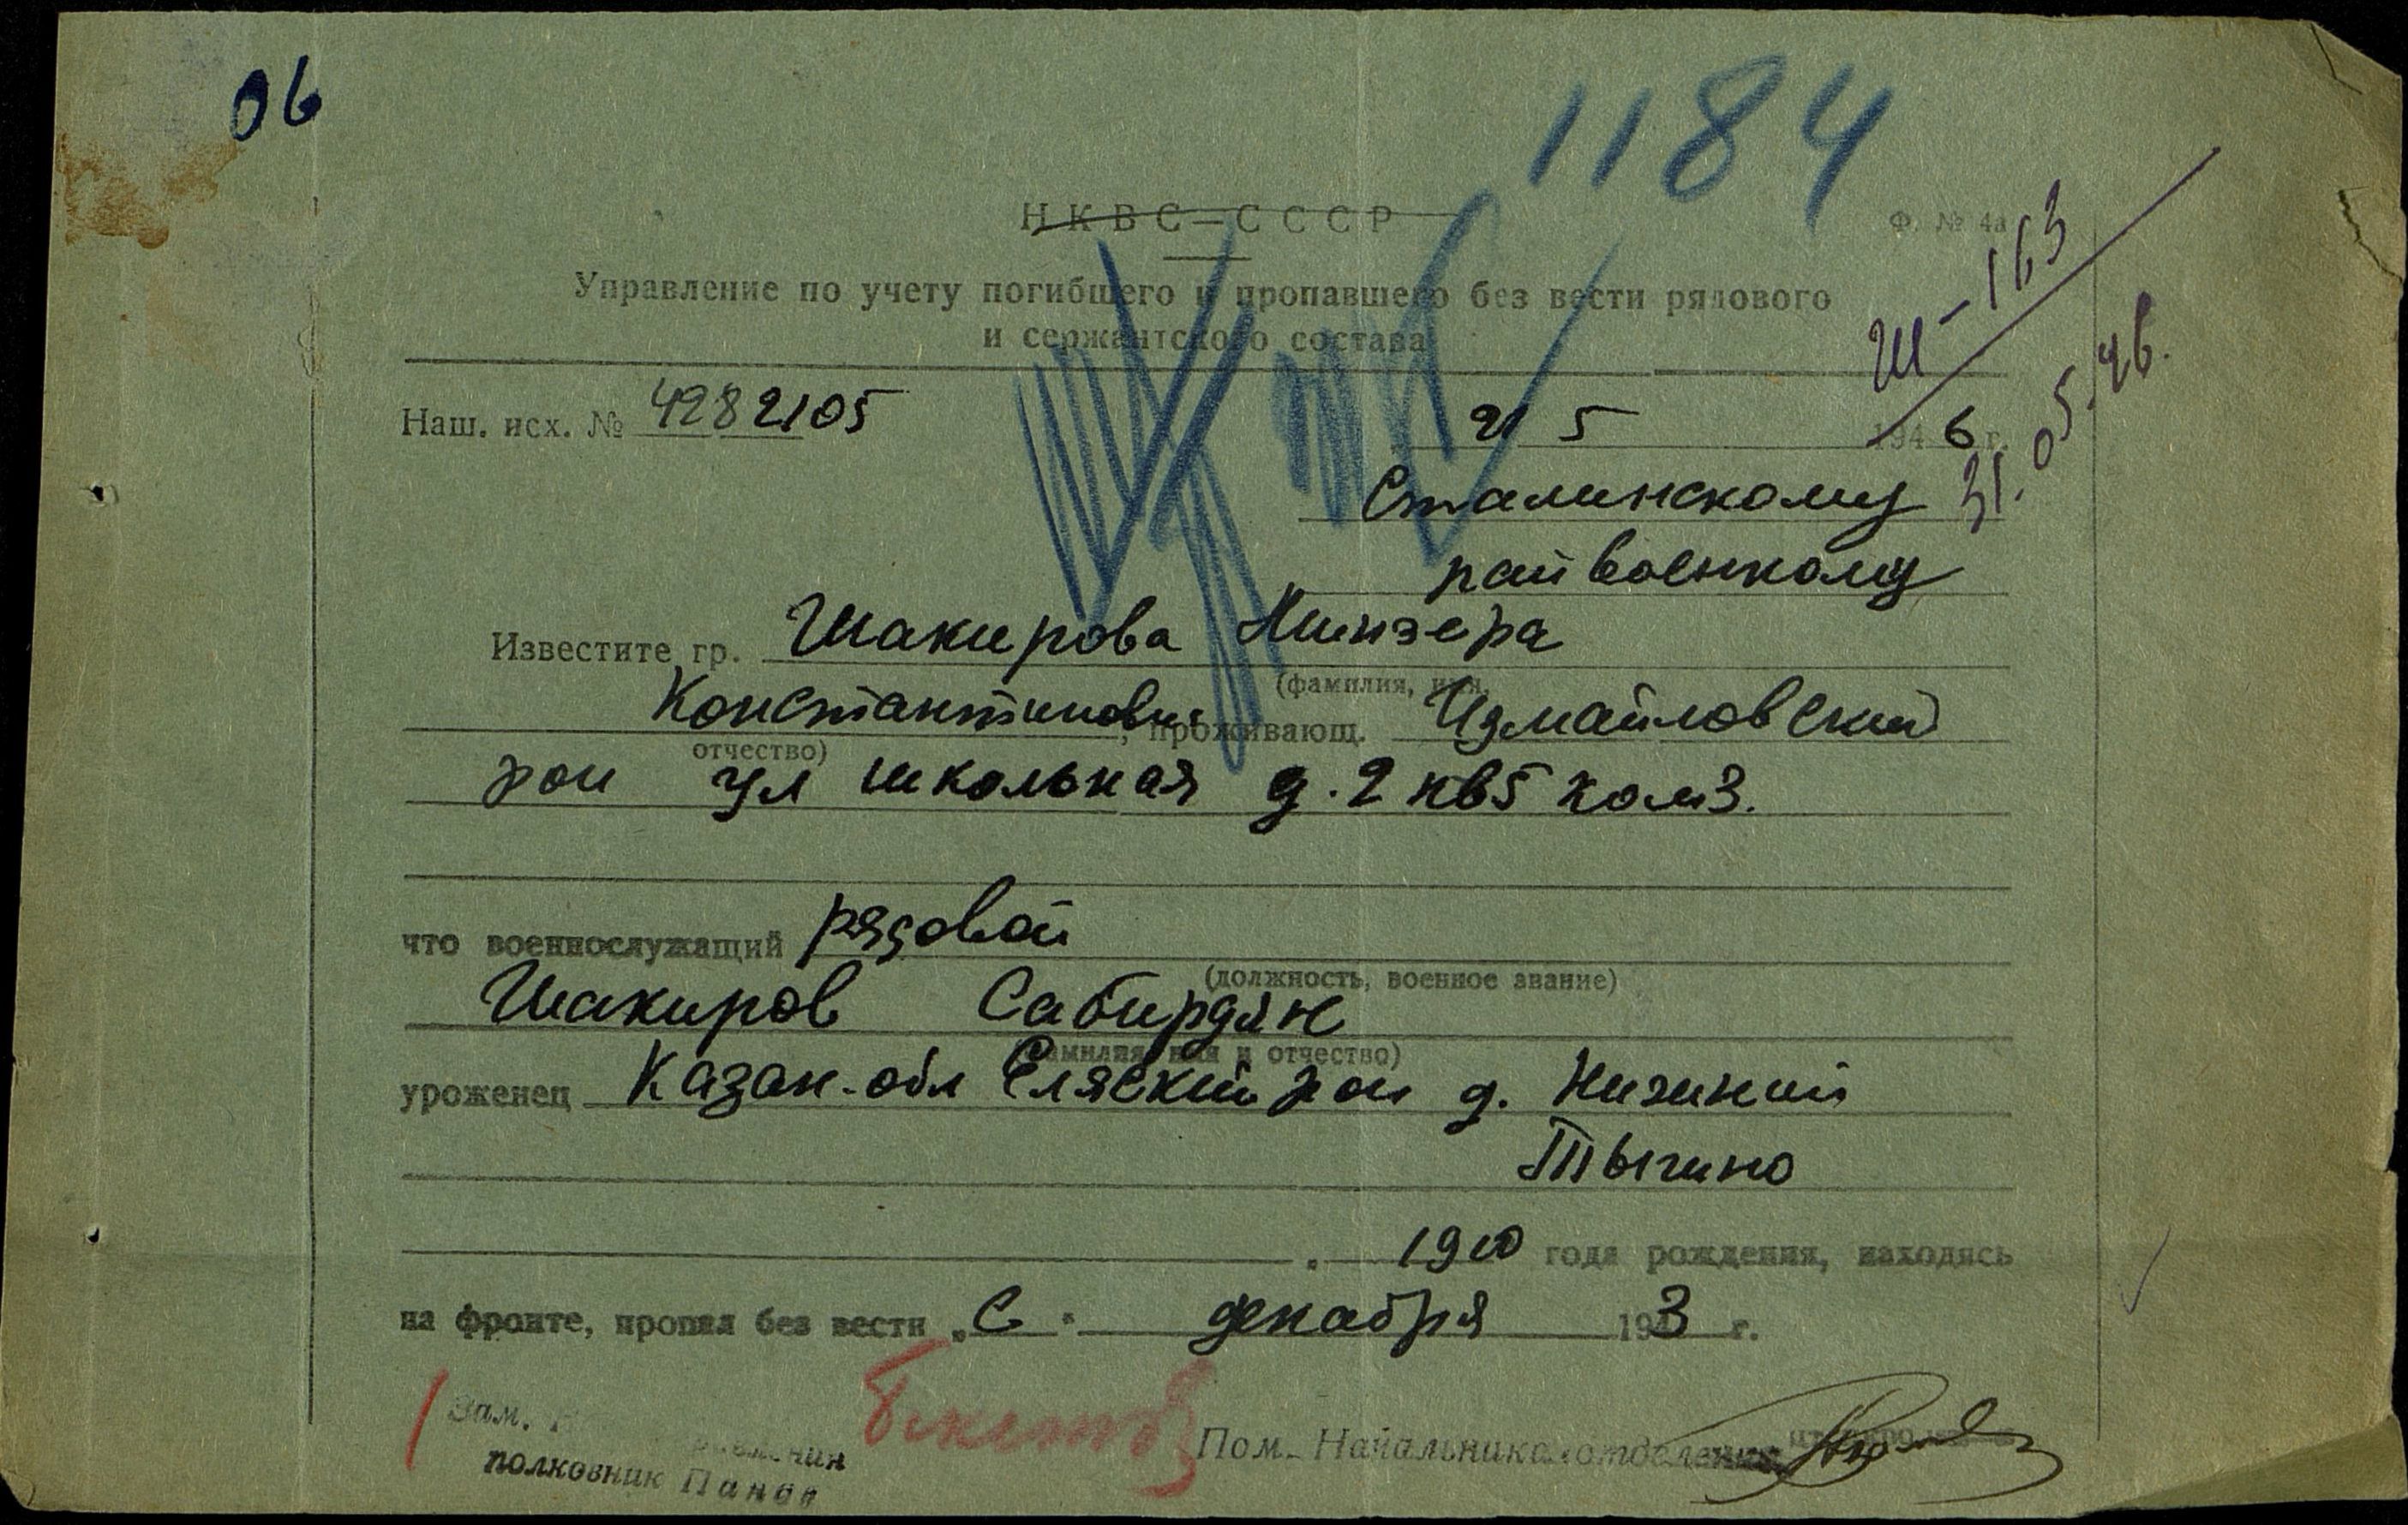 06
1184
НКВС-СССР
Ф. № 4а
Ш-163
31.05.46.
Управление по учету погибшего и пропавшего без вести рядового
и сержантского состава
Наш. исх. № 4282105
21 5 1946 г.
Сталинскому
райвоенкому
Известите гр. Шакирова Минзера
(фамилия, имя,
Константиновна, проживающ. Измайловский
отчество)
рон ул школьная д.2 кв5 ком3.
что военнослужащий рядовой
(должность, военное звание)
Шакиров Сабирдян
(фамилия, имя и отчество)
уроженец Казан-обл Еляский рои д. Нижиний
Тыгино
1910 года рождения, находясь
на фронте, пропал без вести „С" декабря 1943 г.
Зам.
полковник Панов
Пом. Начальника отделения